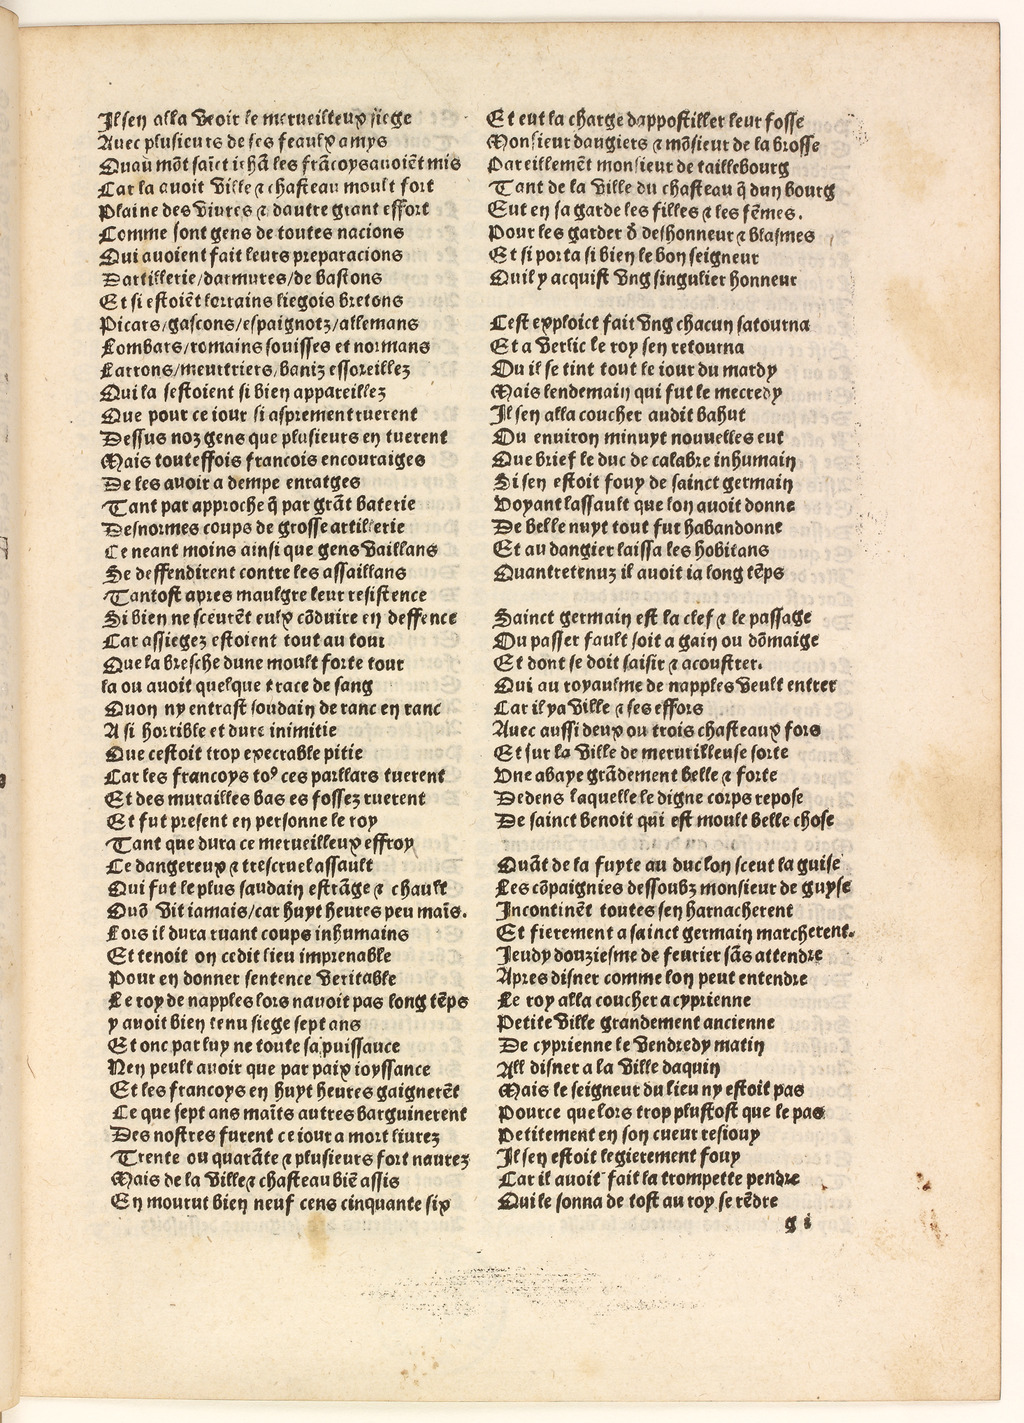 Il sen alla veoir le merueilleux siege
Auec plusieurs de ses feaulx amys
Quau mõt saict iehã les frãcoys auoiẽt mis
Car la auoit ville ⁊ chasteau moult fort
Plaine des viures ⁊ dautre grant effort
Comme sont gens de toutes nacions
Qui auoient fait leurs preparacions
Dartillerie/darmures/de bastons
Et si estoiẽt lorrains liegois bretons
Picars/gascons/espaignotz/allemans
Lombars/romains souisses et normans
Larrons/meurtriers/baniz essoreillez
Qui la sestoient si bien appareillez
Que pour ce iour si asprement ruerent
Dessus noz gens que plusieurs en tuerent
Mais touteffois francois encouraiges
De les auoir a dempe enraiges
Tant par approche q̃ par grãt baterie
Desnormes coups de grosse artillerie
Ce neant moins ainsi que gens vaillans
Se deffendirent contre les assaillans
Tantost apres maulgre leur resistence
Si bien ne sceurẽt eulx cõduire en deffence
Car assiegez estoient tout au tour
Que la bresche dune moult forte tour
la ou auoit quelque trace de sang
Quon ny entrast soudain de ranc en ranc
A si horrible et dure inimitie
Que cestoit trop execrable pitie
Car les francoys to⁹ ces paillars tuerent
Et des murailles bas es fossez ruerent
Et fut present en personne le roy
Tant que dura ce merueilleux effroy
Ce dangereux ⁊ trescruel assault
Qui fut le plus saudain estrãge ⁊ chault
Quõ vit iamais/car huyt heures peu maĩs.
Lors il dura ruant coups inhumains
Et tenoit on cedit lieu imprenable
Pour en donner sentence veritable
Le roy de napples lors nauoit pas long tẽps
y auoit bien tenu siege sept ans
Et onc par luy ne toute sa puissauce
Nen peult auoir que par paix ioyssance
Et les francoys en huyt heures gaignerẽt
Ce que sept ans maĩts autres barguinerent
Des nostres furent ce iour a mort liurez
Trente ou quarãte ⁊ plusieurs fort naurez
Mais de la ville ⁊ chasteau biẽ assis
En mourut bien neuf cens cinquante six
Et eut la charge dappostiller leur fosse
Monsieur dangiers ⁊ mõsieur de la brosse
Pareillemẽt monsieur de taillebourg
Tant de la ville du chasteau q̃ dun bourg
Eut en sa garde les filles ⁊ les fẽmes.
Pour les garder õ deshonneur ⁊ blasmes
Et si porta si bien le bon seigneur
Quil y acquist vng singulier honneur

Cest exploict fait vng chacun satourna
Et a verlic le roy sen retourna
Ou il se tint tout le iour du mardy
Mais lendemain qui fut le mecredy
Il sen alla coucher audit bahut
Ou enuiron minuyt nouuelles eut
Que brief le duc de calabre inhumain
Si sen estoit fouy de sainct germain
Voyant lassault que lon auoit donne
De belle nuyt tout fut habandonne
Et au dangier laissa les hobitans
Quantretenuz il auoit ia long tẽps

Sainct germain est la clef ⁊ le passage
Ou passer fault soit a gain ou dõmaige
Et dont se doit saisir ⁊ acoustrer.
Qui au royaulme de napples veult entrer
Car il ya ville ⁊ ses effors
Auec aussi deux ou trois chasteaux fors
Et sur la ville de merutilleuse sorte
Vne abaye grãdement belle ⁊ forte
Dedens laquelle le digne corps repose
De sainct benoit qui est moult belle chose

Quãt de la fuyte au duc lon sceut la guise
Les cõpaignies dessoubz monsieur de guyse
Incontinẽt toutes sen harnacherent
Et fierement a sainct germain marcherent.
Jeudy douziesme de feurier sãs attendre
Apres disner comme lon peut entendre
Le roy alla coucher a cyprienne
Petite ville grandement ancienne
De cyprienne le vendredy matin
All disner a la ville daquin
Mais le seigneur du lieu ny estoit pas
Pource que lors trop plustost que le pas
Petitement en son cueur resiouy
Il sen estoit legierement fouy
Car il auoit fait la trompette pendre
Qui le sonna de tost au roy se rẽdre
g i